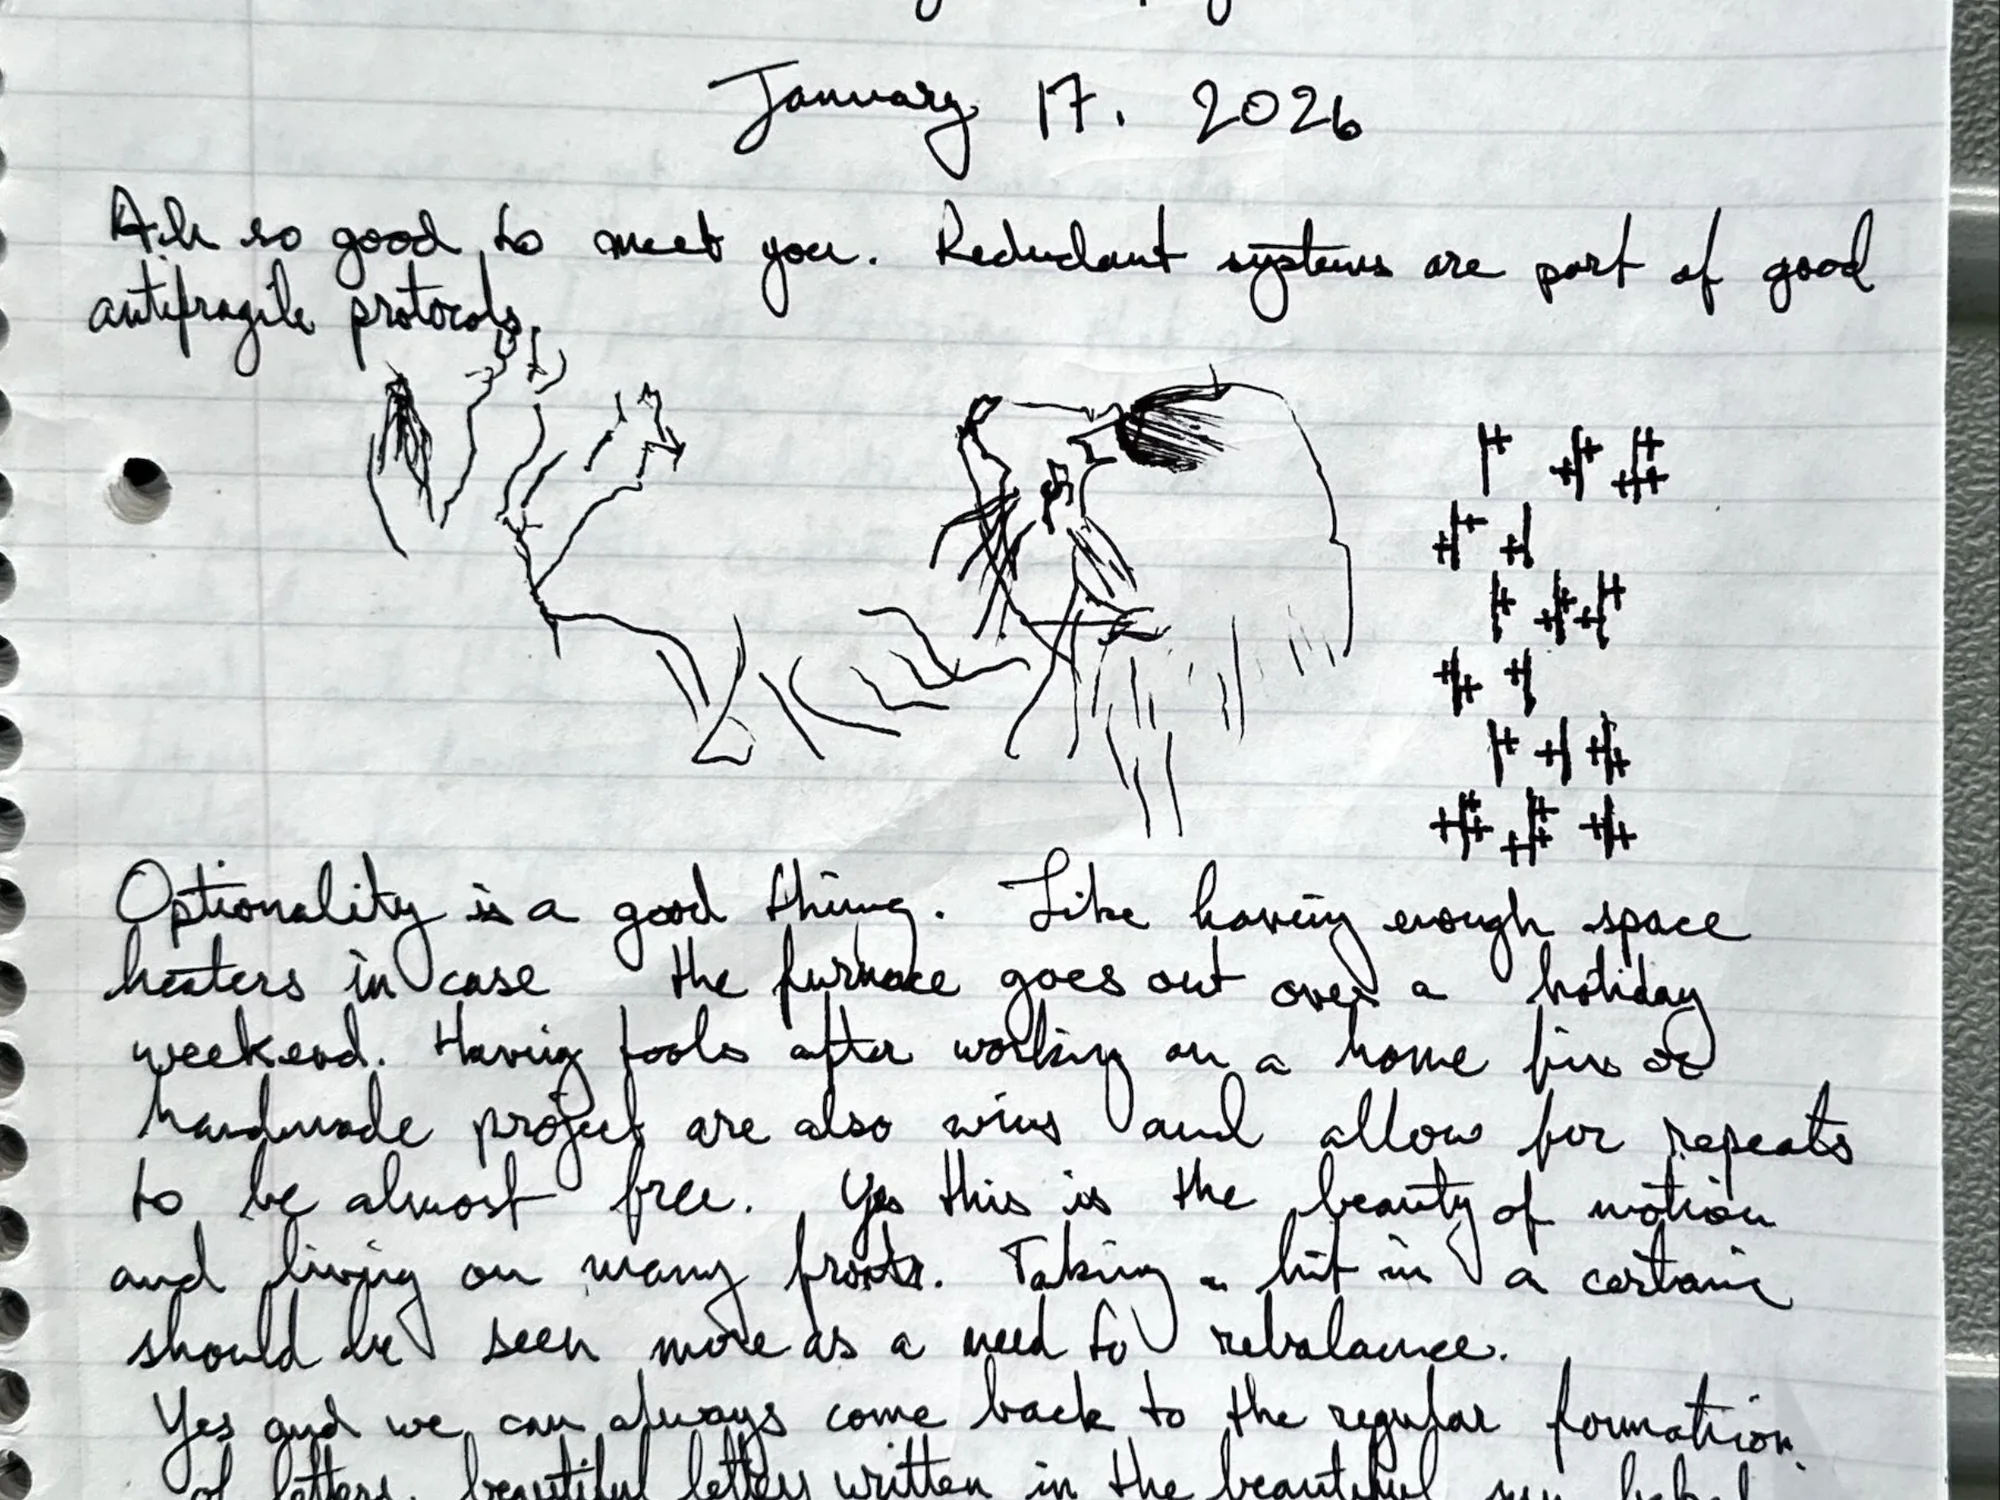 January 17. 2026
Ah so good to meet you. Redudant systems are part of good
antifragile protocols.
Optionality is a good thing. Like having enough space
heaters in case the furnace goes out over a holiday
weekend. Having tools after working on a home fix or
handmade project are also wins and allow for repeats
to be almost free. Yes this is the beauty of motion
and living on many fronts. Taking a hit in a certain
should be seen more as a need to rebalance.
Yes and we can always come back to the regular formation
of letters, beautiful letters written in the beautiful sun baked